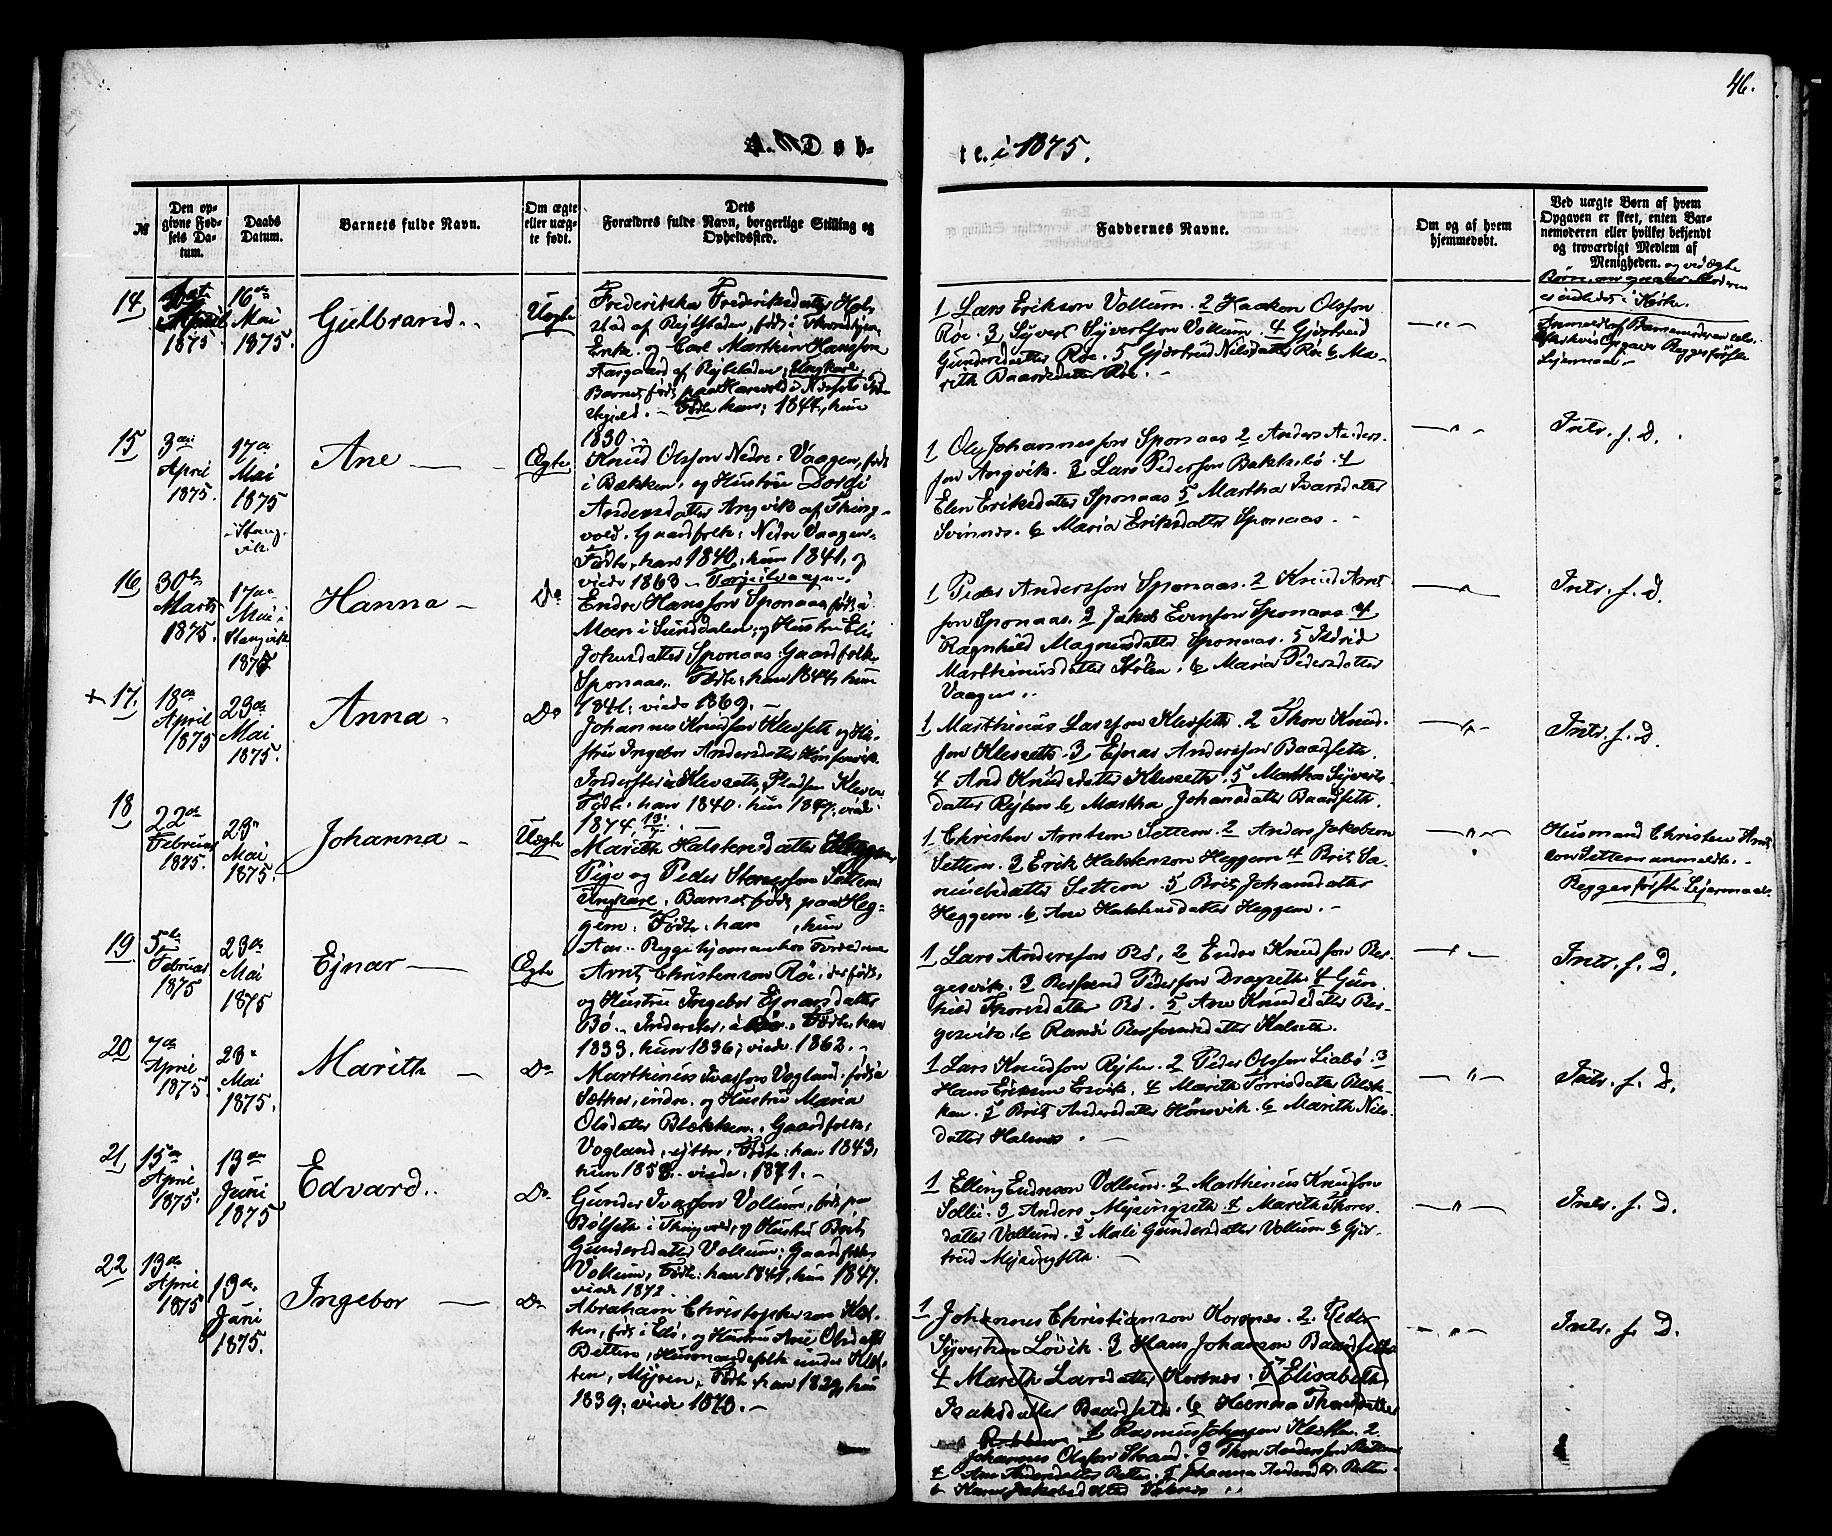 46.
A. Døb-
te. i 1875.
№
Den op-
givne Fød-
sels Da-
tum.
Daabs
Datum.
Barnets fulde Navn.
Om ægte
eller uæg-
te født.
Dets
Forældres fulde Navn, borgerlige Stilling og
Opholdssted.
Faddernes Navne.
Om og af hvem
hjemmedøbt.
Ved uægte Børn af hvem
Opgaven er skeet, enten Bar-
nemoderen eller hvilket bekjendt
og troværdigt Medlem af
Menigheden. og ved ægte
14
April
1875
16de
Mai
1875.
Gulbrand.
Uægte
Frederikke Frederiksdatter
Enke og Carl Marthin Hansson
Aasgaard af Ungkarl,
Barnet født paa
Født: han: 1844, hun
1830.
1 Lars Erikson Vollum. 2 Haakon Olsson
Røe. 3 Syvert Syvertson Vollum. 4 Gjertrud
Gundersdatter Røe. 5 Gjertrud Nilsdatter Røe 6 Ma-
rith Baardsdatter Røe.
Lejermaal
15
3die
April
1875.
17de
Mai
1875
i Stang-
vik.
Ane
Ægte
Knud Olsson Nedre-Vaagen, født
i Bækken, og Hustru Dordi
Andersdatter Angvik af Thing-
vold. Gaardfolk: Nedre Vaagen.
Født, han 1840, hun 1841, og
viede 1863
1 Ole Johannesson Sponaas 2 Anders Anders-
son Angvik. 3 Lars Pederson Bakkebø. 4
Elen Eriksdatter Sponaas 5 Martha Ivarsdatter
Svinnes. 6 Maria Eriksdatter Sponaas.
Intr. f. D.
16
30te
Marts
1875.
17de
Mai i
Stangvik
1875
Hanna
Do
Endre Hansson Sponaas født i
Moen i Sunddalen, og Hustru Elis
Johnsdatter Sponaas: Gaardfolk
Sponaas. Født: han 1844, hun
1841; viede 1869.
1 Peder Andersson Sponaas. 2 Knud Arnt-
son Sponaas. 3 Jakob Evenson Sponaas 4
Ragnhild Magnusdatter Sponaas. 5 Ildrid
Marthinusdatter Stølen. 6 Maria Pedersdatter
Vaagen.
Intr. f. D.
+ 17.
18de
April
1875
23de
Mai
1875.
Anna
Do
Johannes Knudson Klevseth og Hu-
stru Ingebor Andersdatter
Klevseth, Pladsen Kleven
Født: han 1840. hun 1847. viede
1874
1 Marthinus Larsson Klevseth. 2 Thore Knud-
son Klevseth. 3 Ejnar Anderson Baardseth.
4 And Knudsdatter Klevseth. 5 Martha Syverts-
datter Rejten 6 Martha Johansdatter Baardseth.
Intr. f. D.
18
22de
Februar
1875.
23de
Mai
1875.
Johanna
Uægte
Marith Halstensdatter Heggem
Pige og Peder Settem
Ungkarl, Barnet født paa Heg-
gem: Født: han , hun
Aar. Begge hjemme hos Forældrene
1 Christen Arntson Settem. 2 Anders Jakobson
Settem. 3 Erik Halstenson Heggem 4 Brit Sa-
muelsdatter Settem. 5 Brit Johansdatter
Heggem. 6 Ane Halstensdatter Heggem.
Husmand Christen Arnt-
son Settem anmeldte.
Begges første Lejermaal
19
5te
Februar
1875
23de
Mai
1875
Ejnar
Ægte
Arnt Christenson Røe, der født,
og Hustru Ingebor Ejnarsdatter
Bø. Inderster, i Røe. Født: han
1833, hun 1836; viede 1862.
1 Lars Andersson Bø, 2 Endre Knudson Ber-
gesvik. 3 Bersvend Pederson Dragseth 4 Gun-
hild Thoresdatter Bø. 5 Ane Knudsdatter Ber-
gesvik. 6 Randi Halseth.
Intr. f. D.
20
7de
April
1875
23de
Mai
1875.
Marith
Do
Marthinus Ivarson Vogland, født i
Sæther, indre. og Hustru Maria
Olsdatter Blækken. Gaardfolk:
Vogland, ejttre. Født: han 1843,
hun 1858. viede: 1871.
1 Lars Knudson Rejten. 2 Peder Olsson Liabø. 3
Hans Erikson Ersvik. 4 Marith Torrisdatter Blek-
ken. 5 Brit Andersdatter Hønsvik. 6 Marith Nils-
datter Halsnes.
Intr. f. D.
21
15de
April
1875.
13de
Juni
1875
Edvard
Do
Gunder Ivarson Vollum, født paa
Bølseth i Thingvold, og Hustru Brit
Gundersdatter Vollum: Gaardfolk
Vollum, Født: han 1841, hun 1847.
viede 1872.
1 Elling Endreson Vollum. 2 Marthinus Knudson
Sollie. 3 Anders 4 Marith Thores-
datter Vollum. 5 Mali Gundersdatter Vollum 6 Gjer-
trud
Intr. f. D.
22
13de
April
1875
13de
Juni
1875.
Ingebor
Do
Abraham Christopherson Klet-
ten, født i Edø, og Hustru Ane Olsdatter
Betten, Husmandsfolk under Klet-
ten, Myren, Født: han 1829, hun
1839; viede 1873.
1 Johannes Christianson Korsnes. 2. Peder
Syvertsen Løvik. 3 Hans Johanson Baardseth
4 Marith Larsdatter Korsnes. 5 Elisabeth
Isaksdatter Baardseth. 6 Hanna Thoresdatter
1 Rasmus Johanson Kletten. 2
Johannes Olsson Strand. 3 Thore Andersson Betten
4 Ane Andersdatter Betten. 5 Johanna Andersdtr. Betten
6 Karen Jakobsdatter
Intr. f. D.